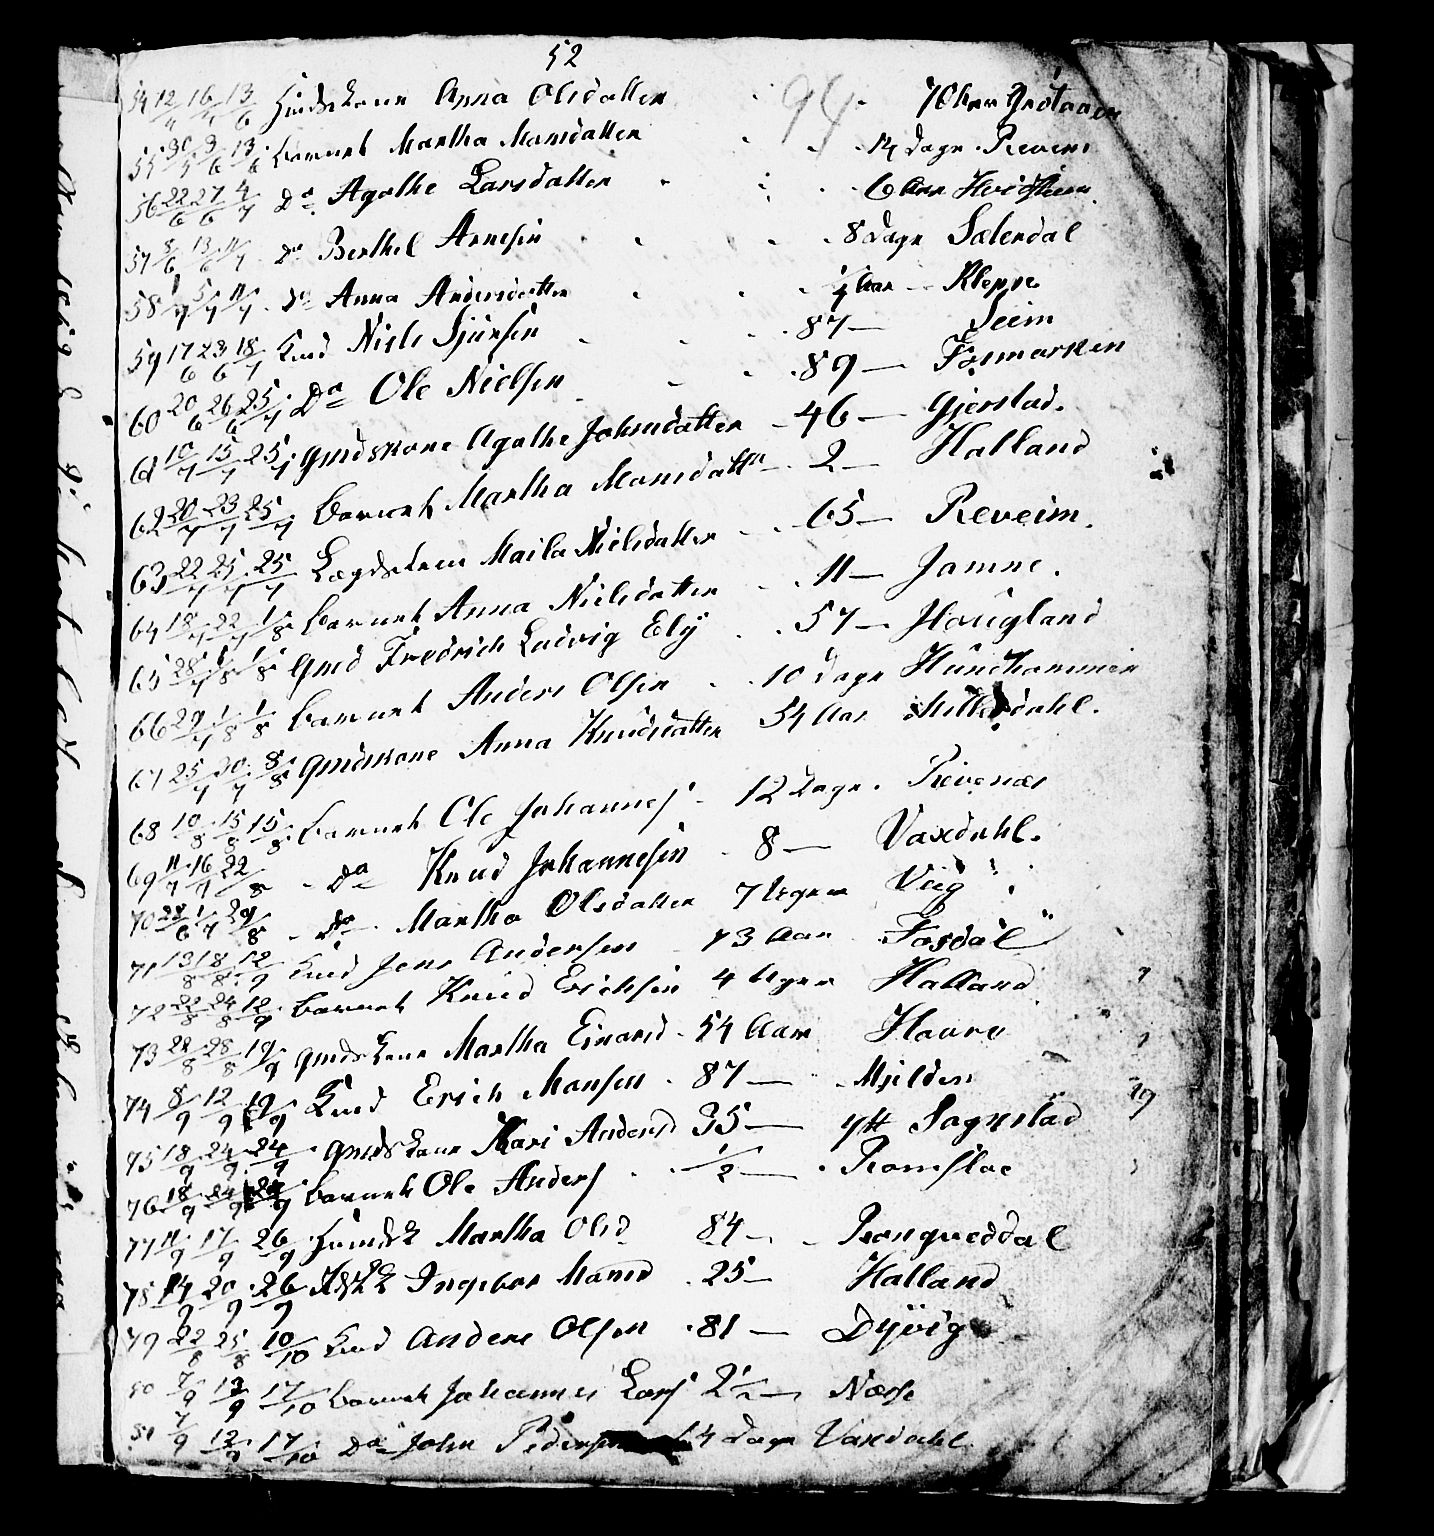 52
94
54 12/4 16/4 13/6 Huuskone Anna Olsdatter 70 Aar
55 30/5 3/6 13/6 Barnet Martha Monsdatter 14 Dage Reveim
56 22/6 27/6 4/7 Do Agathe Larsdatter 6 Aar
57 8/6 13/6 11/7 Do Berthel Arnesen 8 Dage Sæterdal
58 5/7 11/7 Do Anna Andersdatter 1/4 Aar Kleppe
59 17/6 23/6 18/7 Kaad Niels Sjursen 87 — Seim
60 20/6 26/6 25/7 Do Ole Nielsen 89 — Fosmarken
61 10/7 15/7 25/7 Gmdskone Agathe Johnsdatter 46 — Gjerstad.
62 20/7 23/7 25/7 Barnet Martha Monsdattr 2 — Halland
63 22/7 25/7 25/7 Lægdslem Maila Nielsdatter 65 — Reveim.
64 18/7 22/7 1/8 Barnet Anna Nielsdatter 11 — Jamne.
65 28/7 1/8 1/8 Gmd Fredrich Ludvig Ely 57 — Hougland
66 29/7 1/8 1/8 Barnet Anders Olsen 10 Dage Hundhammer
67 25/7 30/7 8/8 Gmdskone Anna Knudsdatter 54 Aar
68 10/8 15/8 15/8 Barnet Ole Johannes 12 Dage. Reivenæs
69 11/7 16/7 22/8 Do Knud Johannesen 8 — Vaxdahl.
70 28/6 1/7 29/8 Do Martha Olsdatter 7 Uger Veig
71 13/8 18/8 12/9 Kaad Jens Andersen 73 Aar Fosdal
72 22/8 24/8 12/9 Barnet Knud Erichsen 4 Uger Halland
73 22/8 28/8 19/9 Gmdskone Martha Einarsd. 54 Aar Haare
74 8/9 12/9 19/9 Kaad Erich Monsen 87 — Mjelden
75 18/9 24/9 24/9 Gmdskone Kari Andersd 35 — ytt Sognstad
76 18/9 24/9 24/9 Barnet Ole Anders 1/2 — Romsloe
77 11/9 17/9 26/9 Martha Olsd 84 — Rongveddal
78 14/9 20/9 26/9 Ingebor Monsd 25 — Halland
79 22/8 25/8 10/10 Kaad Anders Olsen 81 — Dyvig
80 7/9 12/9 17/10 Barnet Johannes Lars 2 1/2 — Næsse
81 7/9 12/9 17/10 Do John Pedersen 14 Dage Vaxdahl